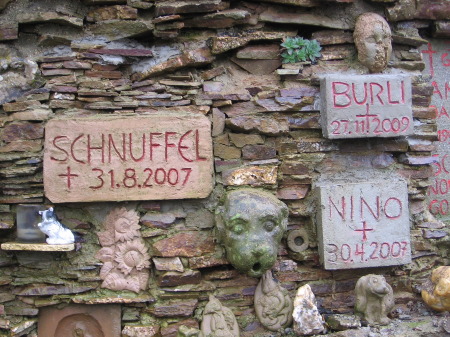 SCHNUFFEL
† 31.8.2007
BURLI
†
27.11.2009
NINO
†
30.4.2007